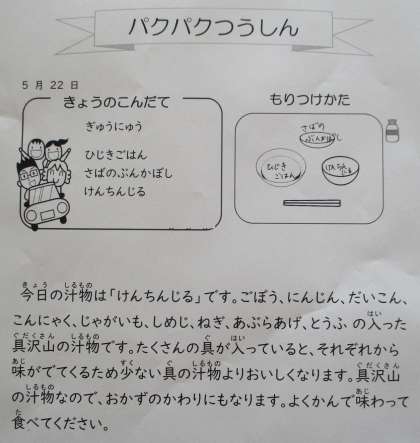 パクパクつうしん
5 月 22 日
きょうのこんだて
ぎゅうにゅう
ひじきごはん
さばのぶんかぼし
けんちんじる
もりつけかた
さばの
ぶんかぼし
ひじき
ごはん
けんちん
じる
今日の汁物は「けんちんじる」です。ごぼう、にんじん、だいこん、
こんにゃく、じゃがいも、しめじ、ねぎ、あぶらあげ、とうふ の入った
具沢山の汁物です。たくさんの具が入っていると、それぞれから
味がでてくるため少ない具の汁物よりおいしくなります。具沢山
の汁物なので、おかずのかわりにもなります。よくかんで味わって
食べてください。